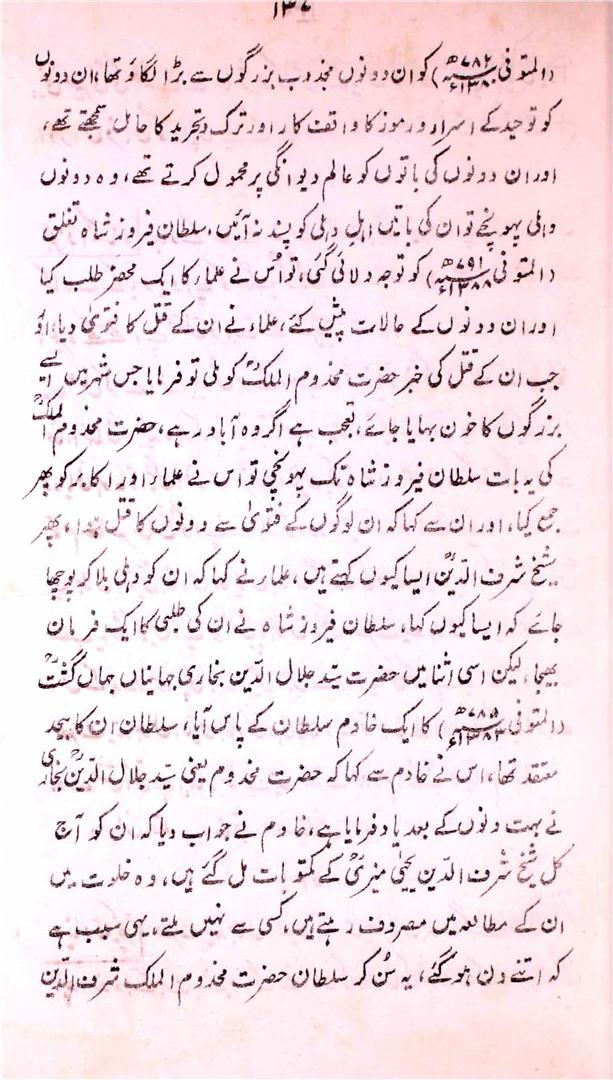 ۱۳۷
(المتوفی ۷۸۲ھ ۱۳۸۰ء) کو ان دونوں مجذوب بزرگوں سے بڑا لگاؤ تھا، ان دونوں
کو توحید کے اسرار و رموز کا واقف کار اور ترک و تجرید کا حامل سمجھتے تھے،
اور ان دونوں کی باتوں کو عالم دیوانگی پر محمول کرتے تھے، وہ دونوں
دہلی پہونچے تو ان کی باتیں اہل دہلی کو پسند نہ آئیں، سلطان فیروز شاہ تغلق
(المتوفی ۷۹۱ھ ۱۳۸۸ء) کو توجہ دلائی گئی، تو اُس نے علماء کا ایک محضر طلب کیا
اور ان دونوں کے حالات پیش کئے، علماء نے ان کے قتل کا فتویٰ دیا، اور
جب ان کے قتل کی خبر حضرت مخدوم الملکؒ کو ملی تو فرمایا جس شہر میں ایسے
بزرگوں کا خون بہایا جائے، تعجب ہے اگر وہ آباد رہے، حضرت مخدوم الملکؒ
کی یہ بات سلطان فیروز شاہ تک پہونچی تو اس نے علماء اور اکابر کو پھر
جمع کیا، اور ان سے کہا کہ ان لوگوں کے فتویٰ سے دونوں کا قتل ہوا، پھر
شیخ شرف الدینؒ ایسا کیوں کہتے ہیں، علماء نے کہا کہ ان کو دہلی بلا کر پوچھا
جائے کہ ایسا کیوں کہا، سلطان فیروز شاہ نے ان کی طلبی کا ایک فرمان
بھیجا، لیکن اسی اثنا میں حضرت سید جلال الدین بخاری جہانیاں جہاں گشتؒ
(المتوفی ۷۸۵ھ ۱۳۸۳ء) کا ایک خادم سلطان کے پاس آیا، سلطان ان کا بیحد
معتقد تھا، اس نے خادم سے کہا کہ حضرت مخدوم یعنی سید جلال الدین بخاریؒ
نے بہت دنوں کے بعد یاد فرمایا ہے، خادم نے جواب دیا کہ ان کو آج
کل شیخ شرف الدین یحییٰ منیریؒ کے مکتوبات مل گئے ہیں، وہ خلوت میں
ان کے مطالعہ میں مصروف رہتے ہیں، کسی سے نہیں ملتے، یہی سبب ہے
کہ اتنے دن ہو گئے، یہ سُن کر سلطان حضرت مخدوم الملک شرف الدین